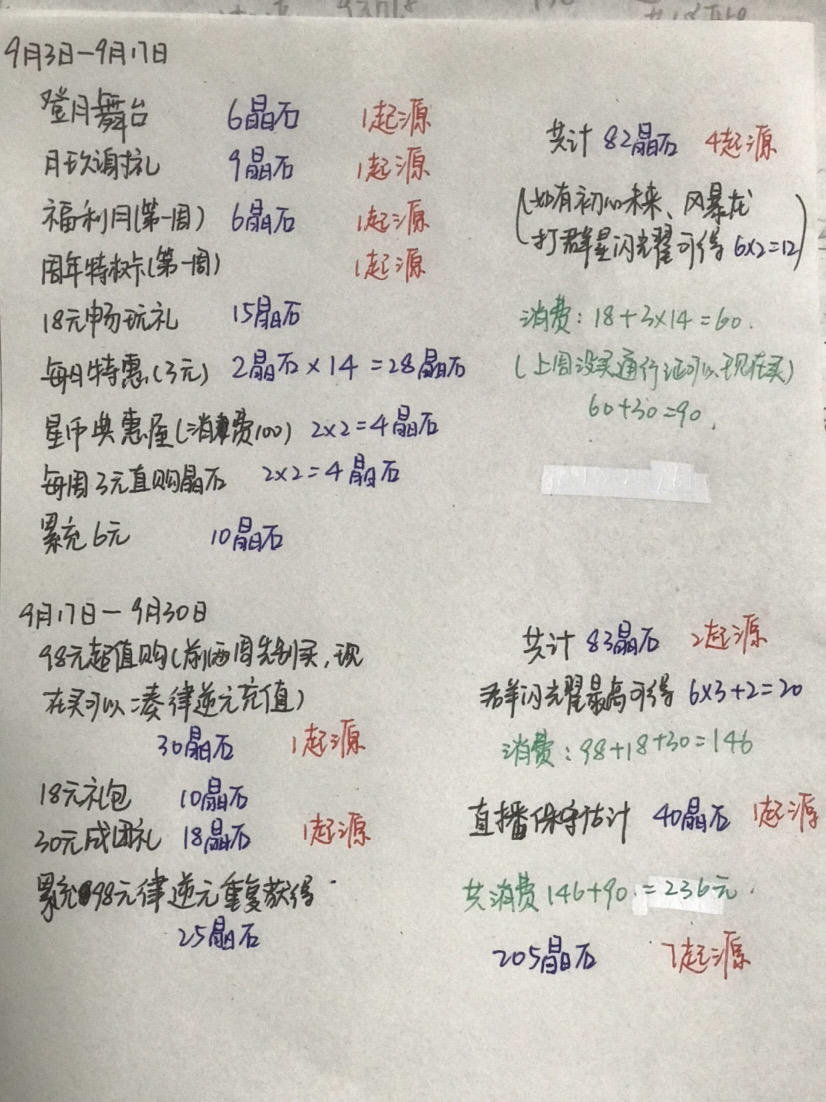 9月3日—9月17日
登月舞台 6晶石 1起源
月玖谢礼 9晶石 1起源
福利月(第一周) 6晶石 1起源
周年特权卡(第一周) 1起源
18元畅玩礼 15晶石
每日特惠(3元) 2晶石×14=28晶石
星币典惠屋(消费100) 2×2=4晶石
每周3元直购晶石 2×2=4晶石
累充6元 10晶石
共计 82晶石 4起源
(如有初心未来、风暴龙
打群星闪光耀可得 6×2=12)
消费：18+3×14=60.
(上周没买通行证可以现在买)
60+30=90.
9月17日—9月30日
98元超值购(前两周先别买,现
在买可以凑律逆元充值)
30晶石 1起源
18元礼包 10晶石
30元成团礼 18晶石 1起源
累充98元律逆元重复获得
25晶石
共计 83晶石 2起源
群闪光耀最高可得 6×3+2=20
消费：98+18+30=146
直播保守估计 40晶石 1起源
共消费146+90.=236元.
205晶石 7起源